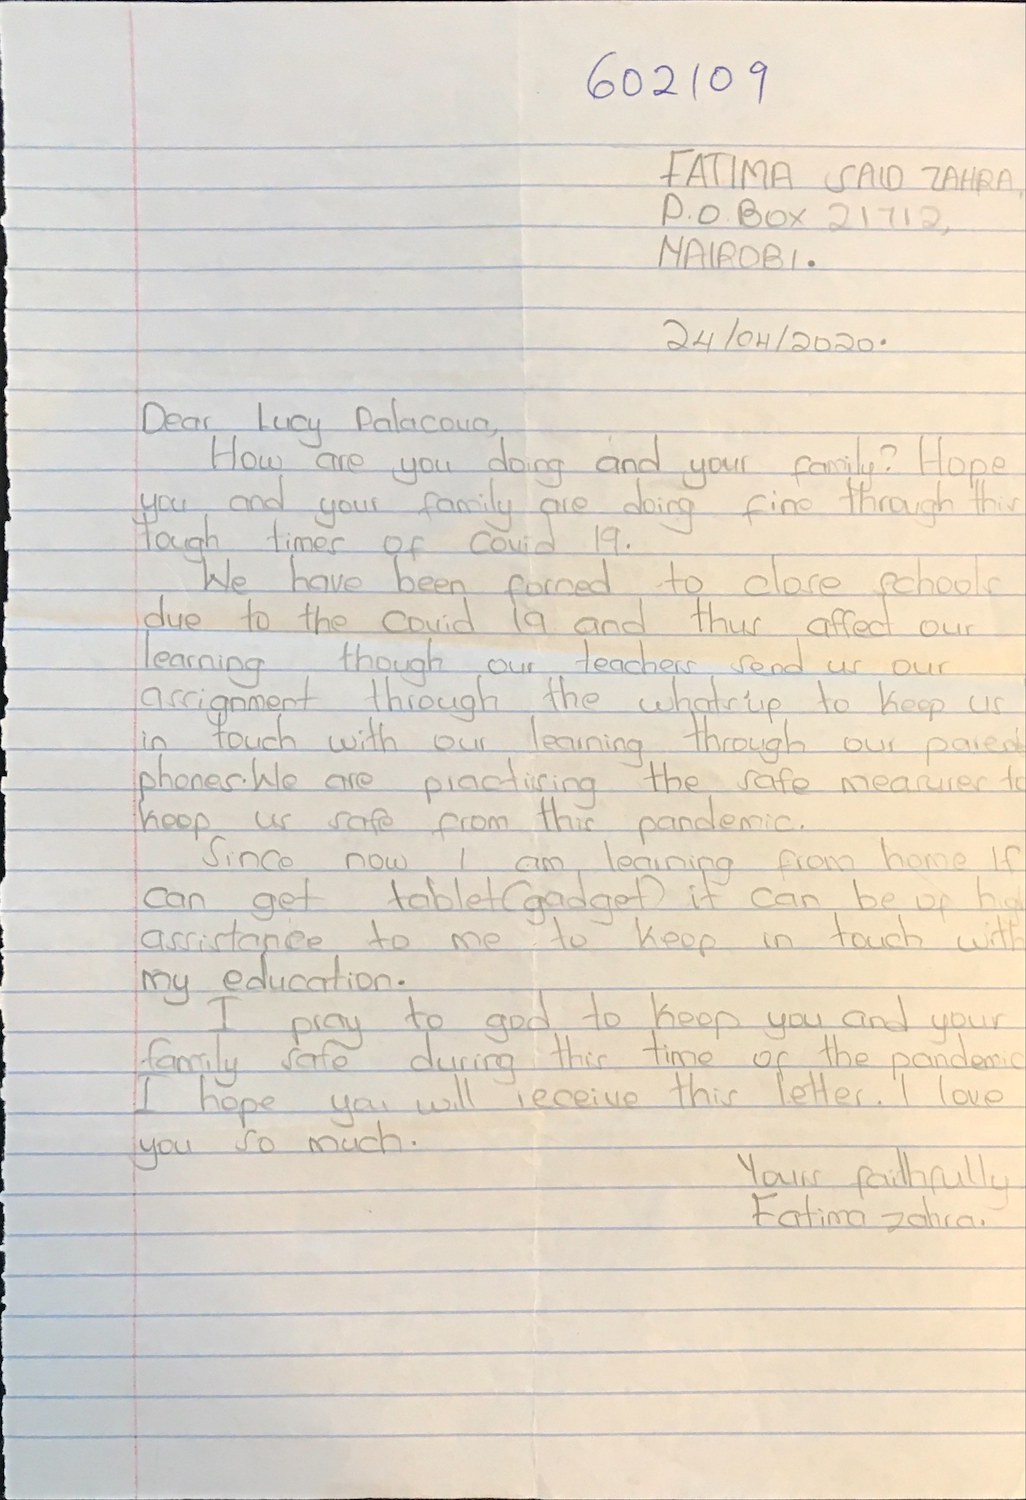 602109
FATIMA SAID ZAHRA,
P.O BOX 21712,
NAIROBI.
24/04/2020.
Dear Lucy Palacova,
How are you doing and your family? Hope
you and your family are doing fine through this
tough times of Covid 19.
We have been forced to close schools
due to the Covid 19 and thus affect our
learning though our teachers send us our
assignment through the whats'up to keep us
in touch with our learning through our
phones. We are practising the safe measures to
keep us safe from this pandemic.
Since now I am learning from home If
can get tablet (gadget) it can be of
assistance to me to keep in touch with
my education.
I pray to god to keep you and your
family safe during this time of the pandemic
I hope you will receive this letter. I love
you so much.
Yours faithfully
Fatima zahra.